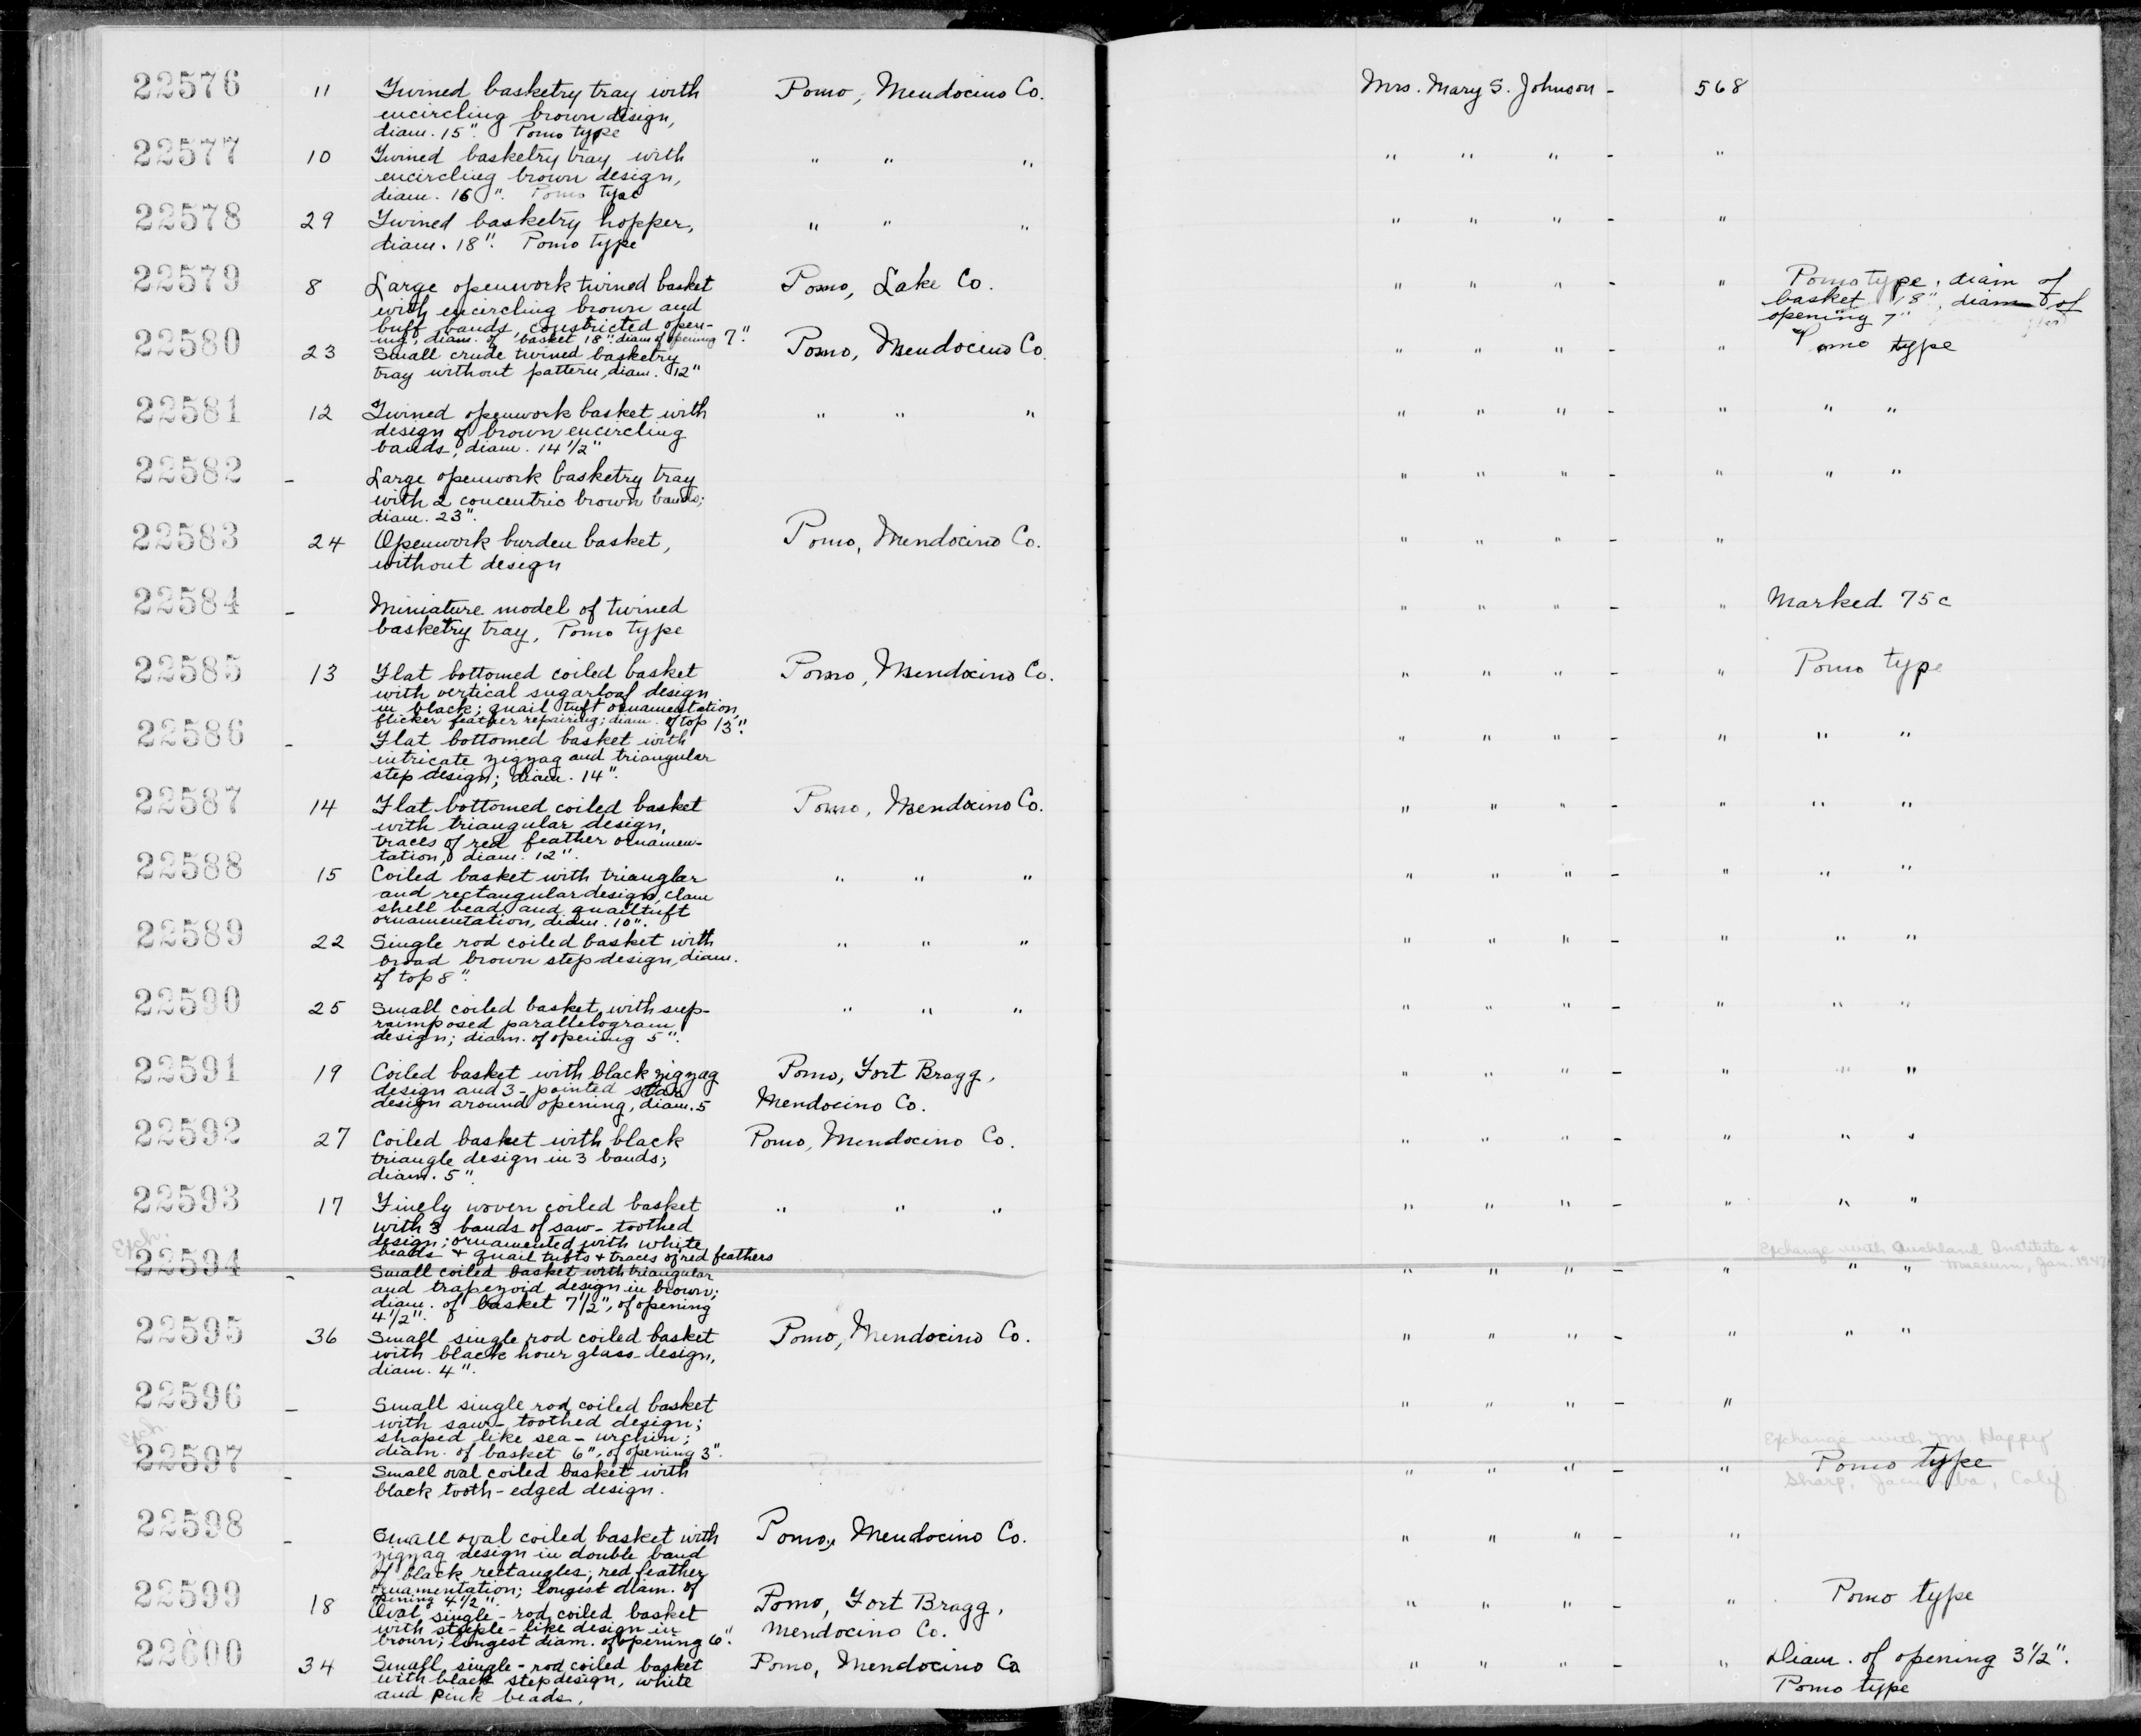 22576 11 Twined basketry tray with Pomo, Mendocino Co. Mrs. Mary S. Johnson - 568
encircling brown design,
diam. 15". Pomo type
22577 10 Twined basketry tray with " " " " " " - "
encircling brown design,
diam. 16". Pomo type
22578 29 Twined basketry hopper, " " " " " " - "
diam. 18". Pomo type
22579 8 Large openwork twined basket Pomo, Lake Co. " " " - " Pomo type, diam of
with encircling brown and basket 18", diam of
buff bands, constricted open- opening 7"
ing, diam. of basket 18", diam of opening 7".
22580 23 Small crude twined basketry Pomo, Mendocino Co. " " " - " Pomo type
tray without pattern, diam. 12"
22581 12 Twined openwork basket with " " " " " " - " " "
design of brown encircling
bands, diam. 14 1/2"
22582 - Large openwork basketry tray " " " - " " "
with 2 concentric brown bands;
diam. 23".
22583 24 Openwork burden basket, Pomo, Mendocino Co. " " " - "
without design
22584 - Miniature model of twined " " " - " Marked 75c
basketry tray, Pomo type
22585 13 Flat bottomed coiled basket Pomo, Mendocino Co. " " " - " Pomo type
with vertical sugarloaf design
in black; quail tuft ornamentation,
flicker feather repairing; diam. of top 13".
22586 - Flat bottomed basket with " " " - " " "
intricate zigzag and triangular
step design; diam. 14".
22587 14 Flat bottomed coiled basket Pomo, Mendocino Co. " " " - " " "
with triangular design,
traces of red feather ornamen-
tation, diam. 12".
22588 15 Coiled basket with trianglar " " " " " " - " " "
and rectangular design, clam
shell bead and quail tuft
ornamentation, diam. 10".
22589 22 Single rod coiled basket with " " " " " " - " " "
broad brown step design, diam.
of top 8".
22590 25 Small coiled basket with sup- " " " " " " - " " "
raimposed parallelogram
design; diam. of opening 5".
22591 19 Coiled basket with black zigzag Pomo, Fort Bragg, " " " - " " "
design and 3-pointed star
design around opening, diam. 5 Mendocino Co.
22592 27 Coiled basket with black Pomo, Mendocino Co. " " " - " " "
triangle design in 3 bands;
diam. 5".
22593 17 Finely woven coiled basket " " " " " " - " " "
with 3 bands of saw-toothed
design; ornamented with white
beads + quail tufts + traces of red feathers
Exch. Exchange with Auckland Institute &
Museum, Jan. 1947
22594 - Small coiled basket with triangular " " " - " " "
and trapezoid design in brown;
diam. of basket 7 1/2", of opening
4 1/2".
22595 36 Small single rod coiled basket Pomo, Mendocino Co. " " " - " " "
with black hour glass design,
diam. 4".
22596 - Small single rod coiled basket " " " - "
with saw-toothed design;
shaped like sea-urchin;
diam. of basket 6", of opening 3".
Exch. Exchange with Mr. Happy
22597 - Small oval coiled basket with " " " - " Pomo type
black tooth-edged design. Sharp, Jacumba, Calif.
22598 - Small oval coiled basket with Pomo, Mendocino Co. " " " - "
zigzag design in double band
of black rectangles; red feather
ornamentation; longest diam. of
opening 4 1/2".
22599 18 Oval single-rod coiled basket Pomo, Fort Bragg, " " " - " Pomo type
with steeple-like design in Mendocino Co.
brown; longest diam. of opening 6".
22600 34 Small single-rod coiled basket Pomo, Mendocino Co " " " - " Diam. of opening 3 1/2".
with black step design, white Pomo type
and pink beads.